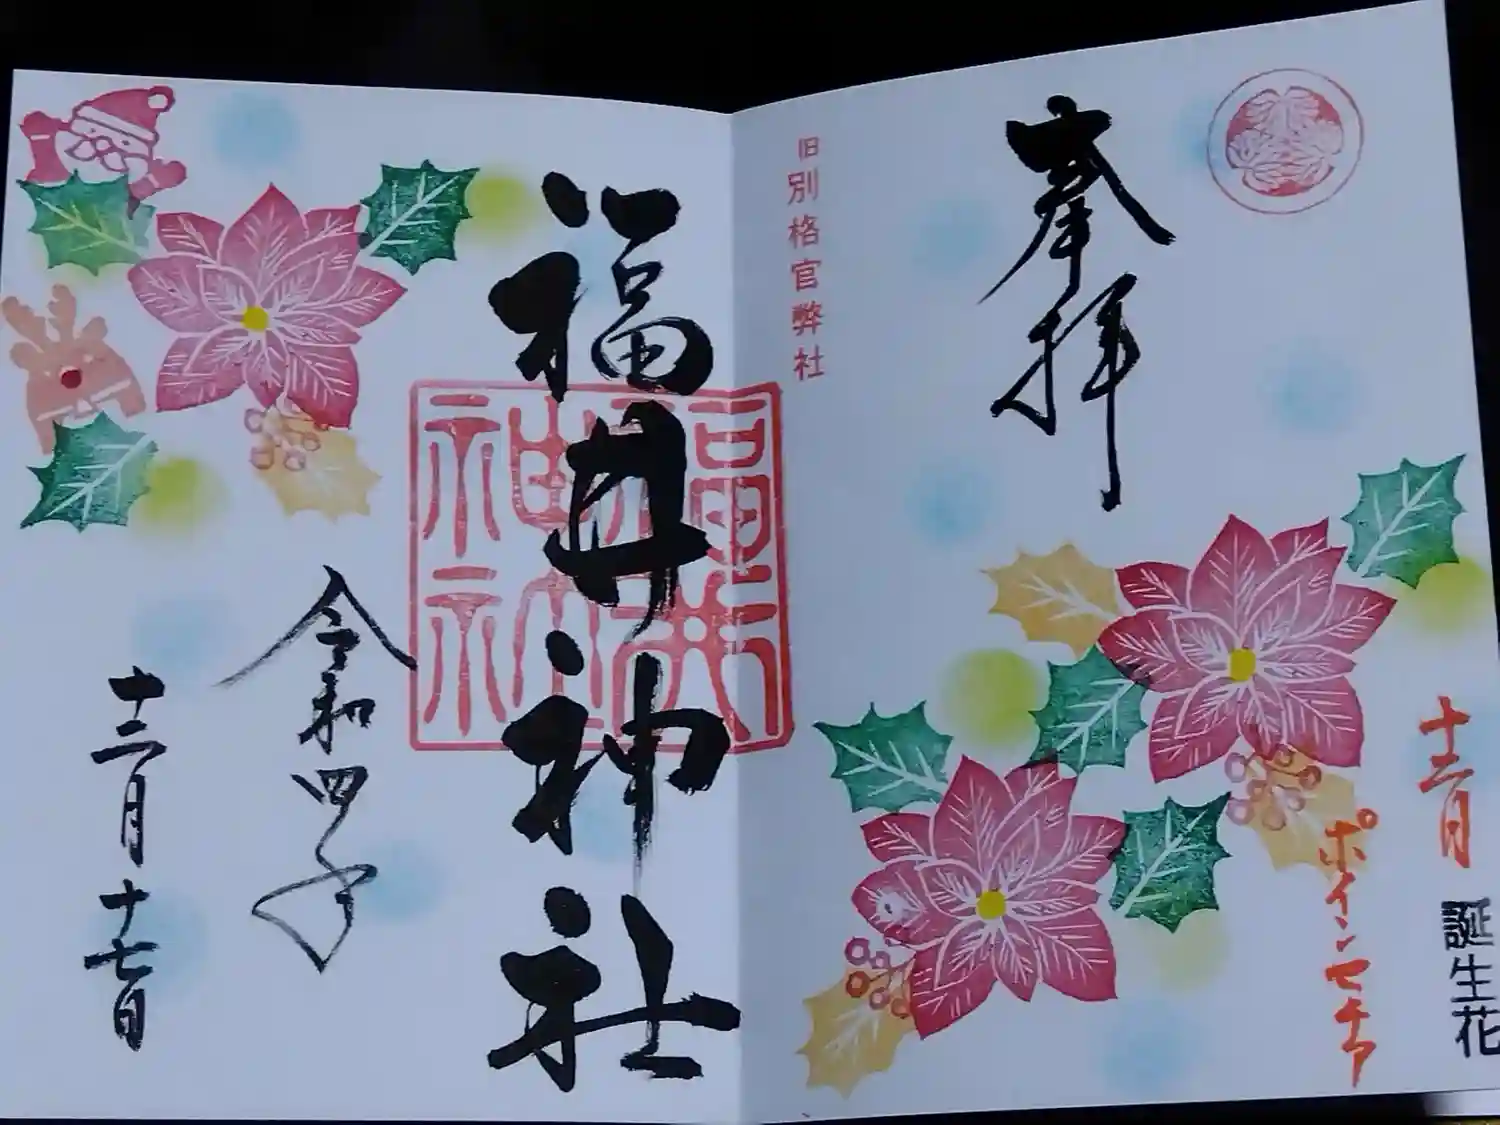 奉拝
旧別格官幣社
福井神社
福井神社
令和四年
十二月十七日
十二月
誕生花
ポインセチア